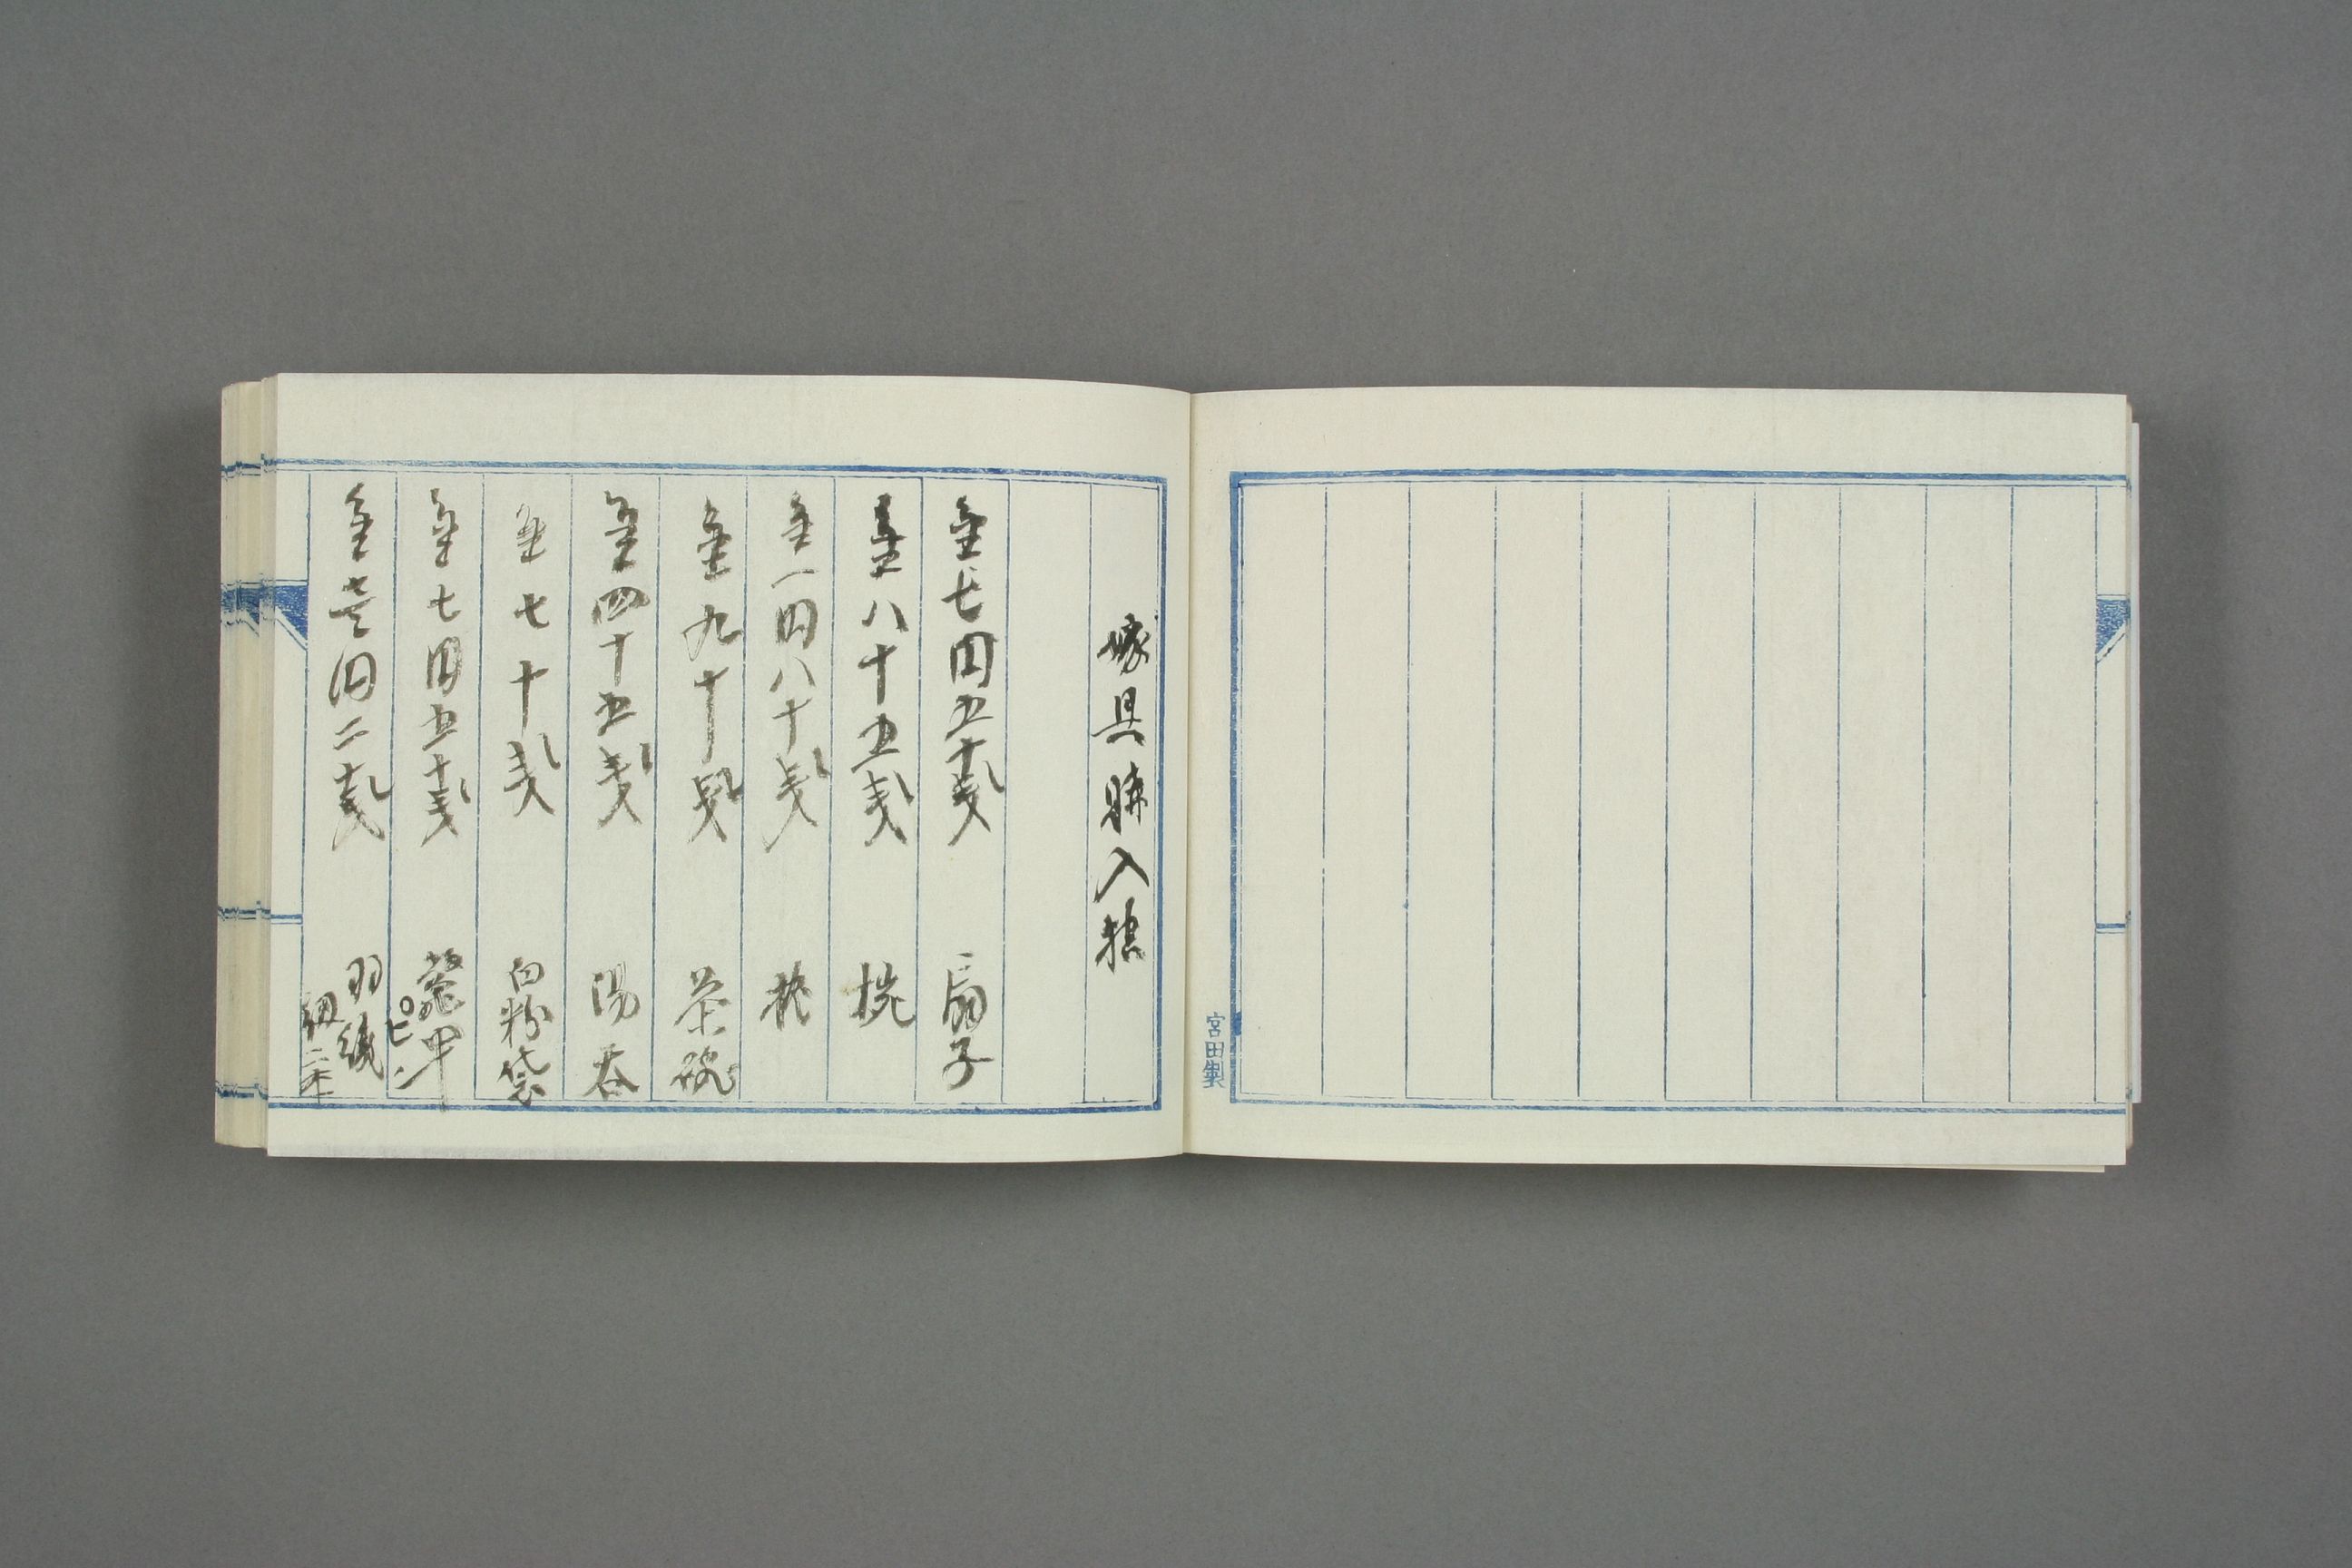 宮田製
嫁具購入控
金七円五十銭 扇子
金八十五銭 椀
金一円八十銭
金九十銭 茶碗
金四十五銭 湯呑
金七十銭 白粉袋
金七円五十銭 鼈甲ピン
金壱円二十銭 羽織紐二本